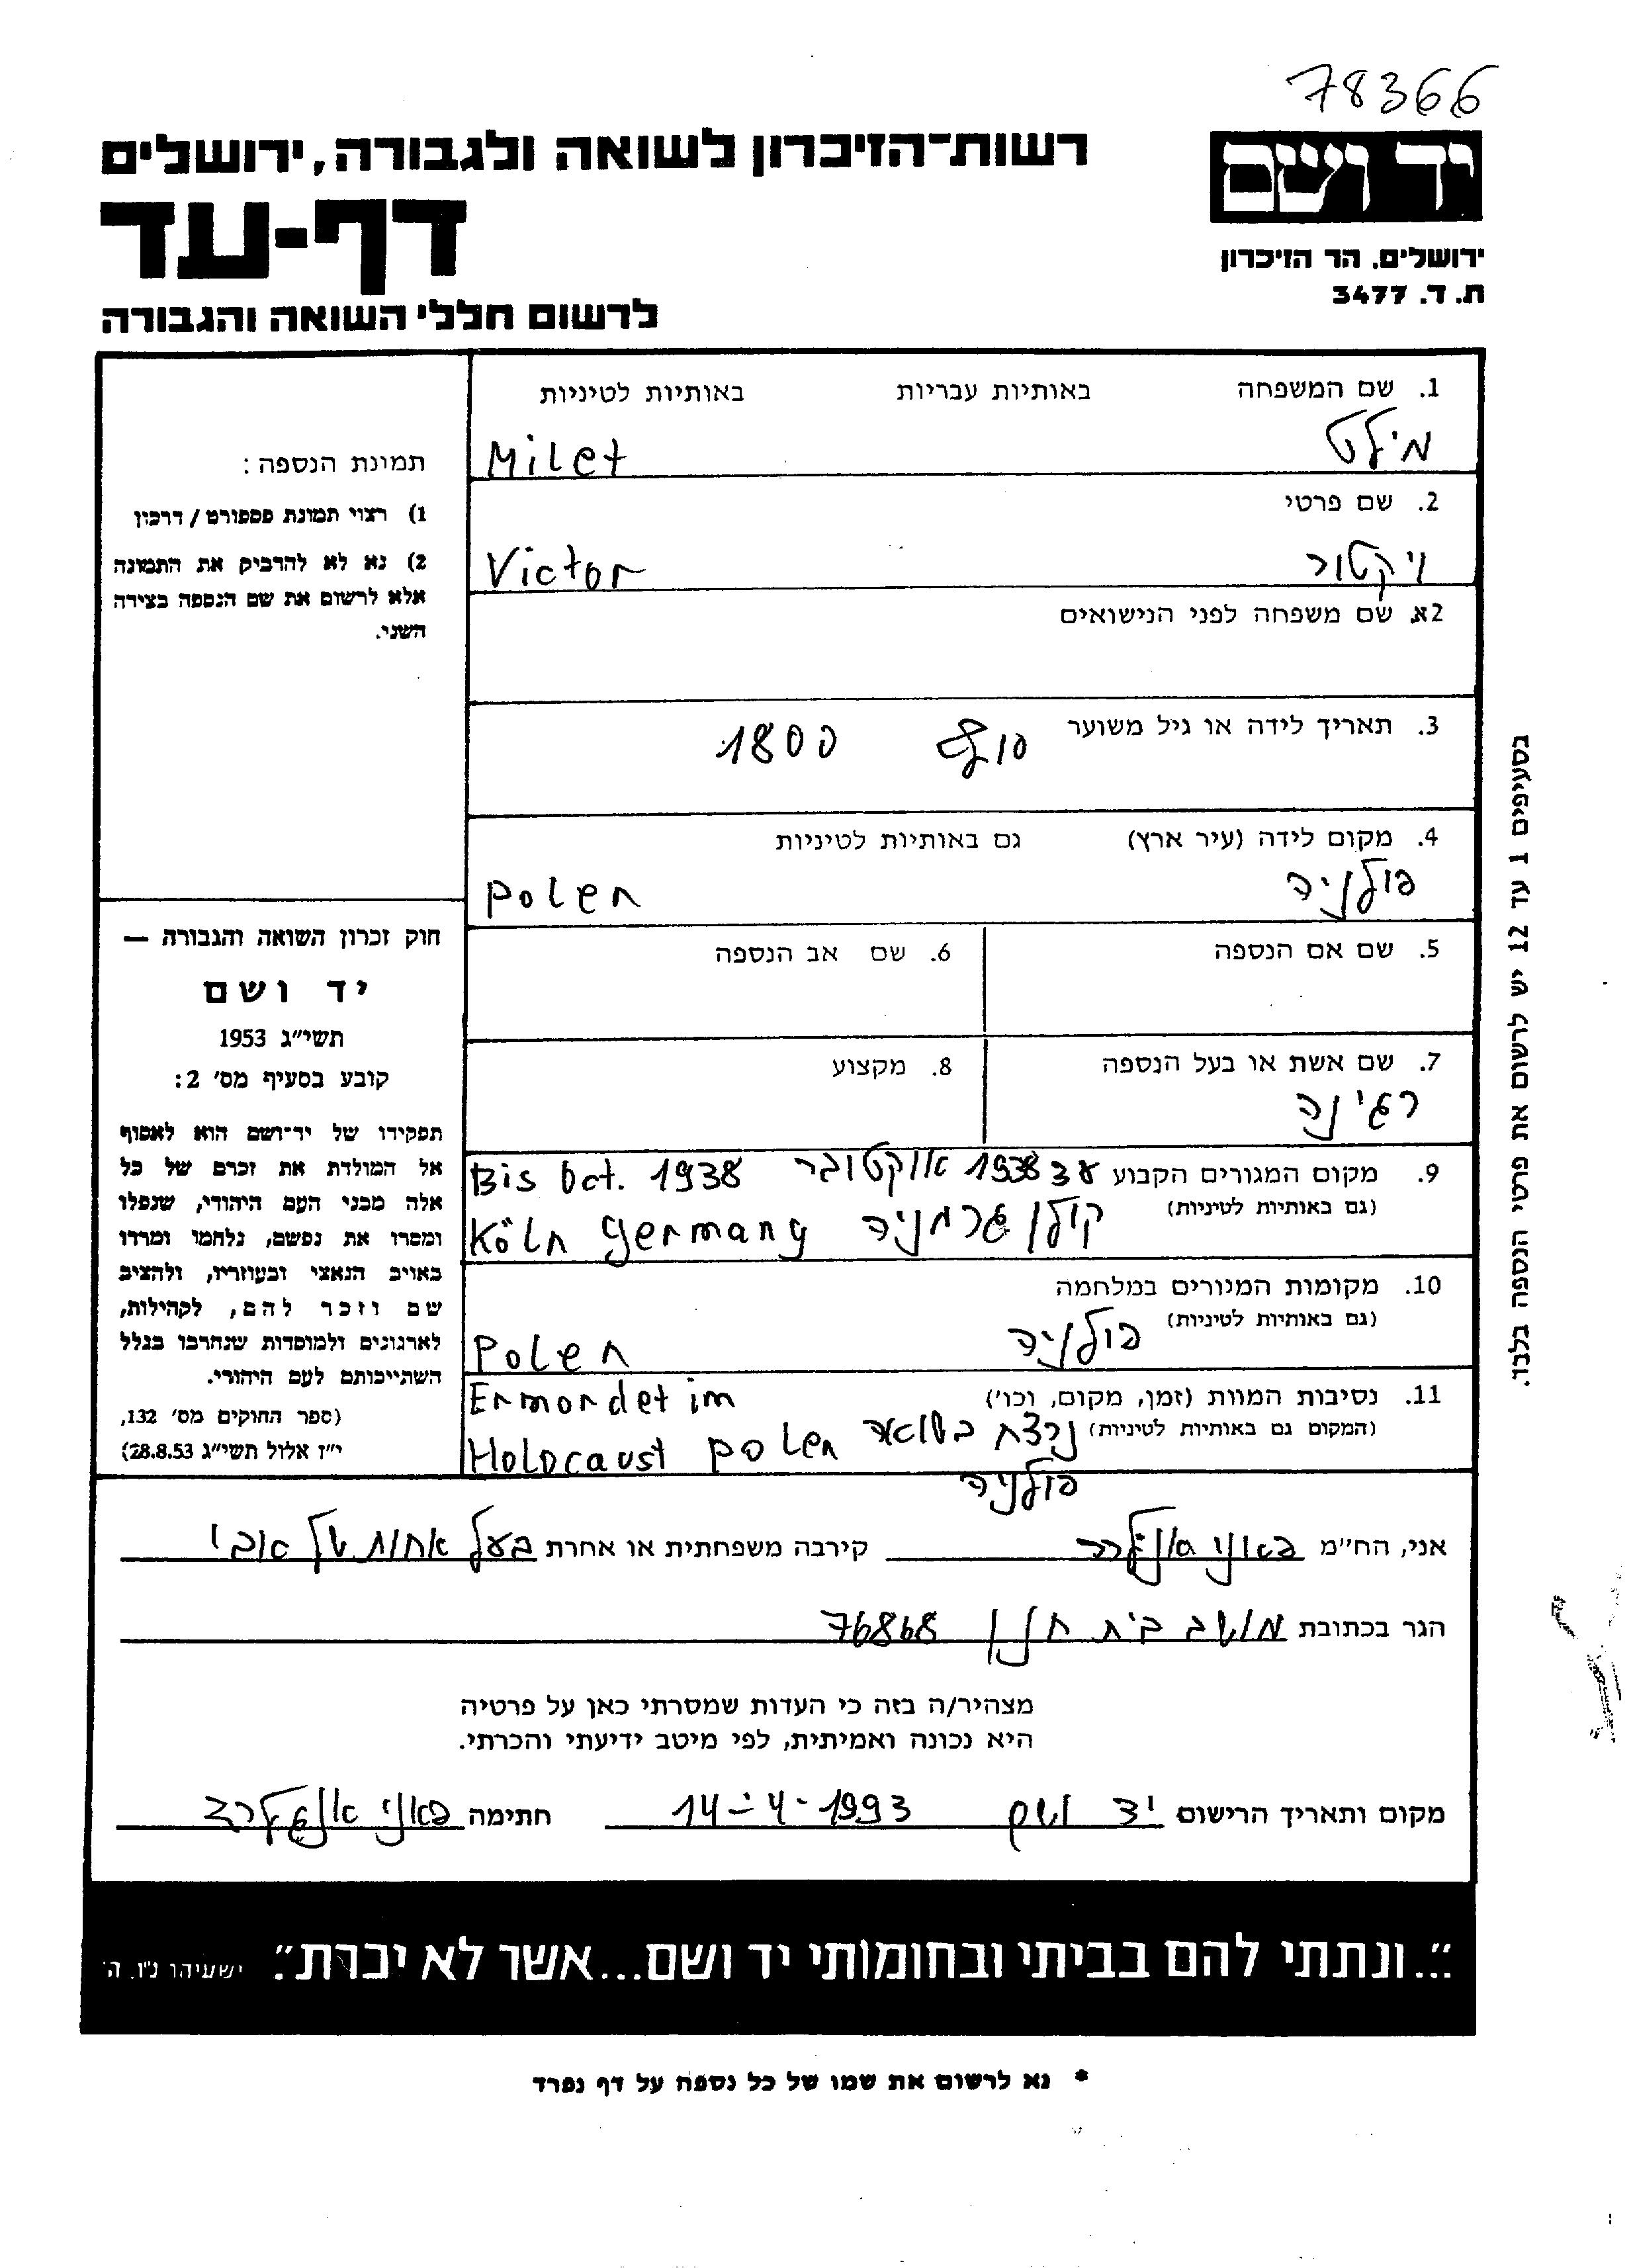 78366
יד ושם
ירושלים. הר הזיכרון
ת. ד. 3477
רשות־הזיכרון לשואה ולגבורה, ירושלים
דף-עד
לרשום חללי השואה והגבורה
1. שם המשפחה באותיות עבריות באותיות לטיניות
מילט Milet
2. שם פרטי
ויקטור Victor
2א. שם משפחה לפני הנישואים
3. תאריך לידה או גיל משוער סוף 1800
4. מקום לידה (עיר ארץ) גם באותיות לטיניות
פולניה Polen
5. שם אם הנספה 6. שם אב הנספה
7. שם אשת או בעל הנספה 8. מקצוע
רגינה
9. מקום המגורים הקבוע עד 1938 אוקטובר Bis Oct. 1938
(גם באותיות לטיניות) קולן גרמניה Köln Germany
10. מקומות המגורים במלחמה
(גם באותיות לטיניות) פולניה Polen
11. נסיבות המוות (זמן, מקום, וכו') Ermordet im
(המקום גם באותיות לטיניות) נרצח בשואה Holocaust Polen
פולניה
תמונת הנספה:
1) רצוי תמונת פספורט / דרכון
2) נא לא להדביק את התמונה
אלא לרשום את שם הנספה בצידה
השני.
חוק זכרון השואה והגבורה —
יד ושם
תשי״ג 1953
קובע בסעיף מס׳ 2:
תפקידו של יד־ושם הוא לאסוף
אל המולדת את זכרם של כל
אלה מבני העם היהודי, שנפלו
ומסרו את נפשם, נלחמו ומרדו
באויב הנאצי ובעוזריו, ולהציב
שם וזכר להם, לקהילות,
לארגונים ולמוסדות שנחרבו בגלל
השתייכותם לעם היהודי.
(ספר החוקים מס׳ 132,
י״ז אלול תשי״ג 28.8.53)
בסעיפים 1 עד 12 יש לרשום את פרטי הנספה בלבד.
אני, הח״מ פאני קירבה משפחתית או אחרת בעל אחות של אבי
הגר בכתובת מושב בית חנן 76868
מצהיר/ה בזה כי העדות שמסרתי כאן על פרטיה
היא נכונה ואמיתית, לפי מיטב ידיעתי והכרתי.
מקום ותאריך הרישום יד ושם 14-4-1993 חתימה פאני
״...ונתתי להם בביתי ובחומותי יד ושם...אשר לא יכרת״. ישעיהו נ״ו. ה׳
* נא לרשום את שמו של כל נספה על דף נפרד